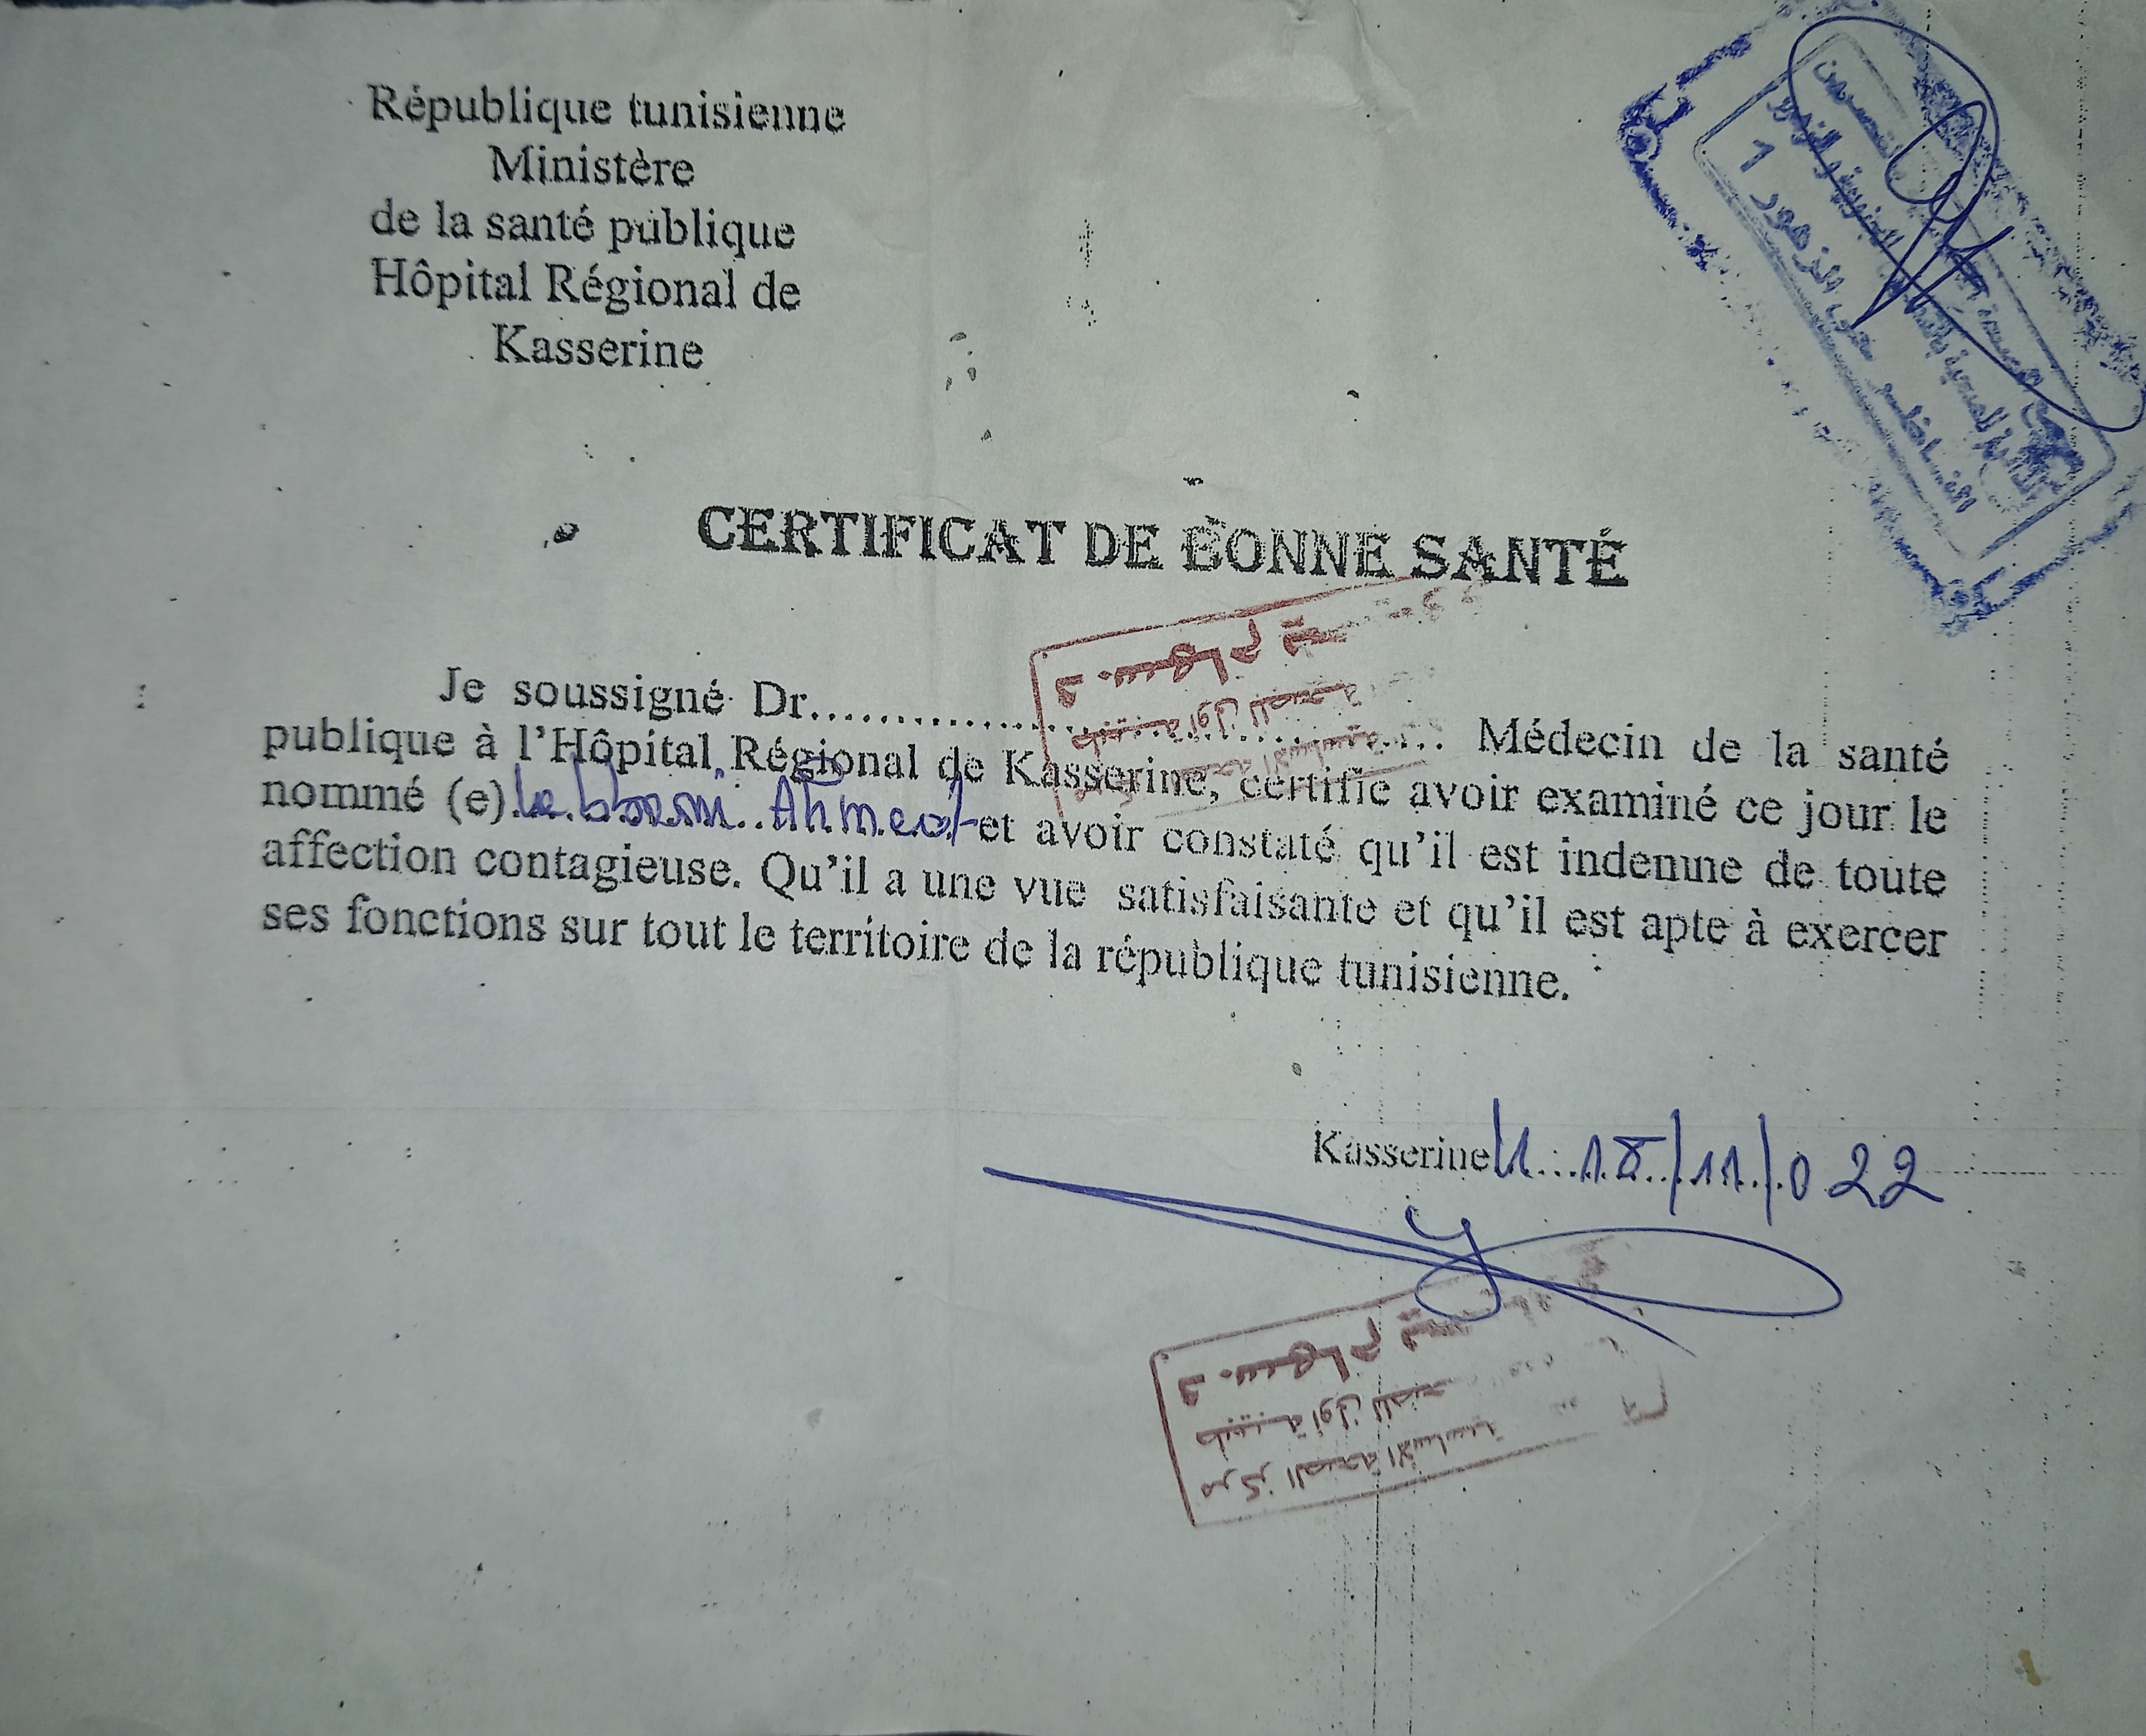 République tunisienne
Ministère
de la santé publique
Hôpital Régional de
Kasserine
7 الزهور
CERTIFICAT DE BONNE SANTÉ
د. سهام
طبيبة أول للصحة
Je soussigné Dr.................................................. Médecin de la santé
publique à l'Hôpital Régional de Kasserine, certifie avoir examiné ce jour le
nommé (e) Ahmed et avoir constaté qu'il est indemne de toute
affection contagieuse. Qu'il a une vue satisfaisante et qu'il est apte à exercer
ses fonctions sur tout le territoire de la république tunisienne.
Kasserine 18/11/022
د. سهام
طبيبة أول للصحة
مركز الصحة الأساسية